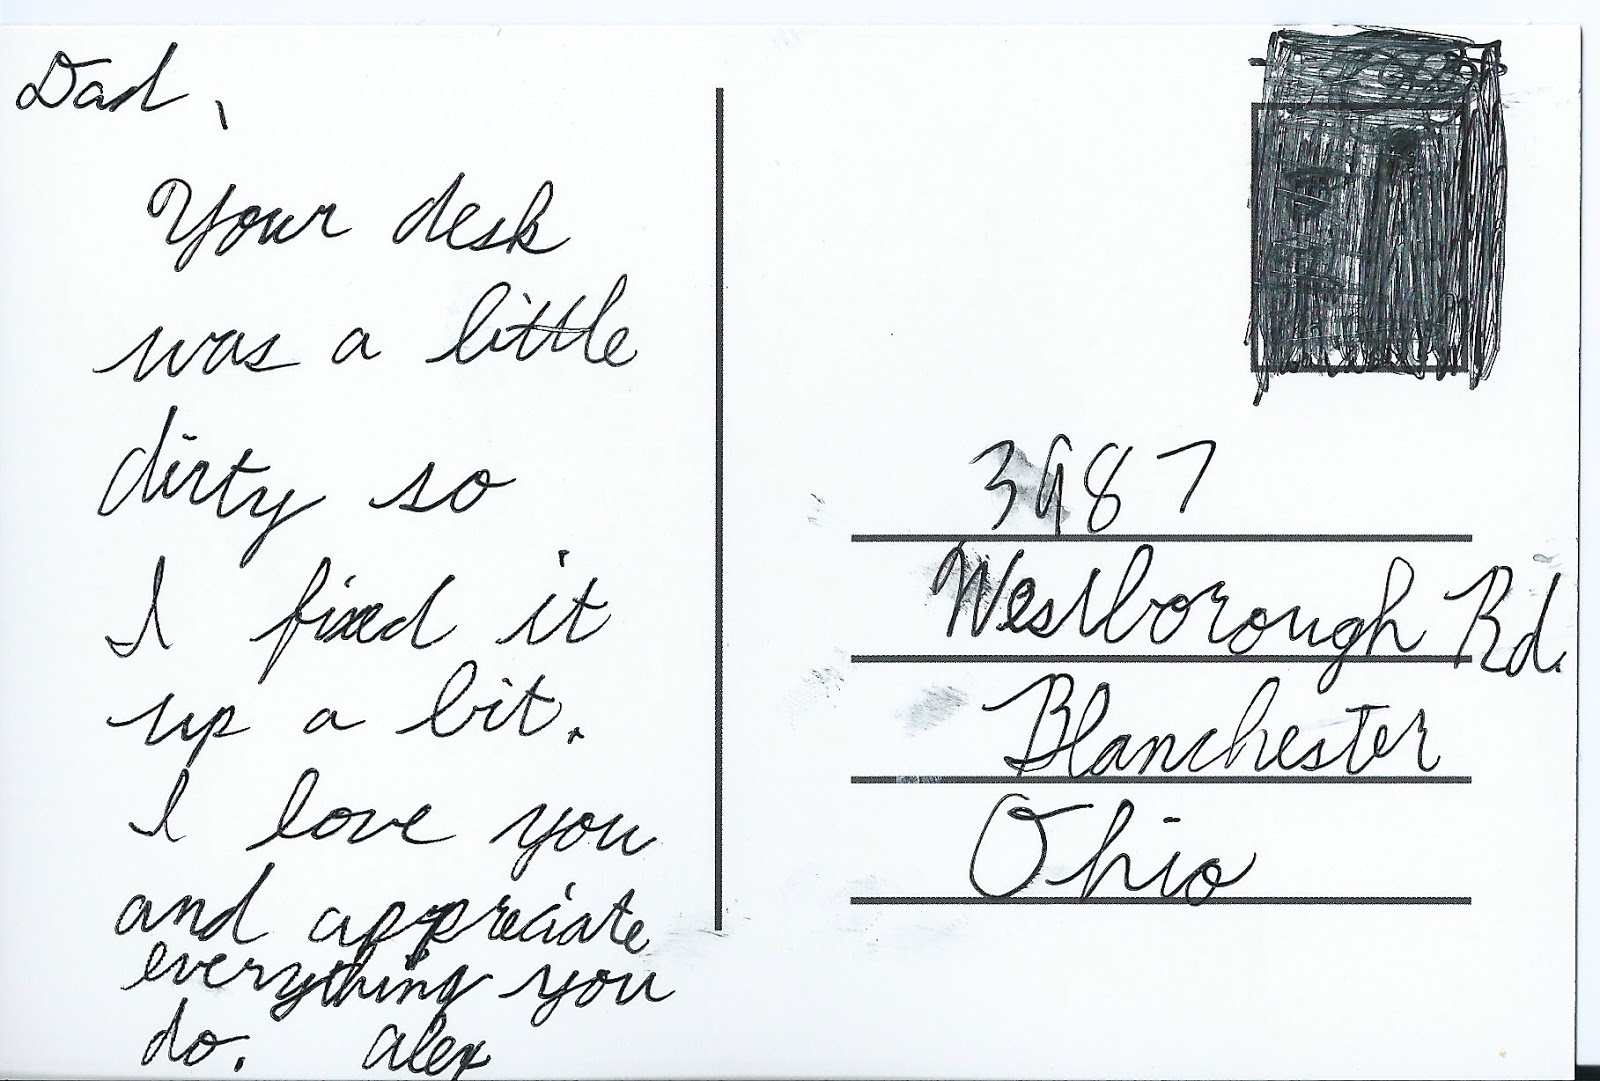 Dad,
Your desk
was a little
dirty so
I fixed it
up a bit.
I love you
and appreciate
everything you
do. Alex
3987
Westborough Rd.
Blanchester
Ohio